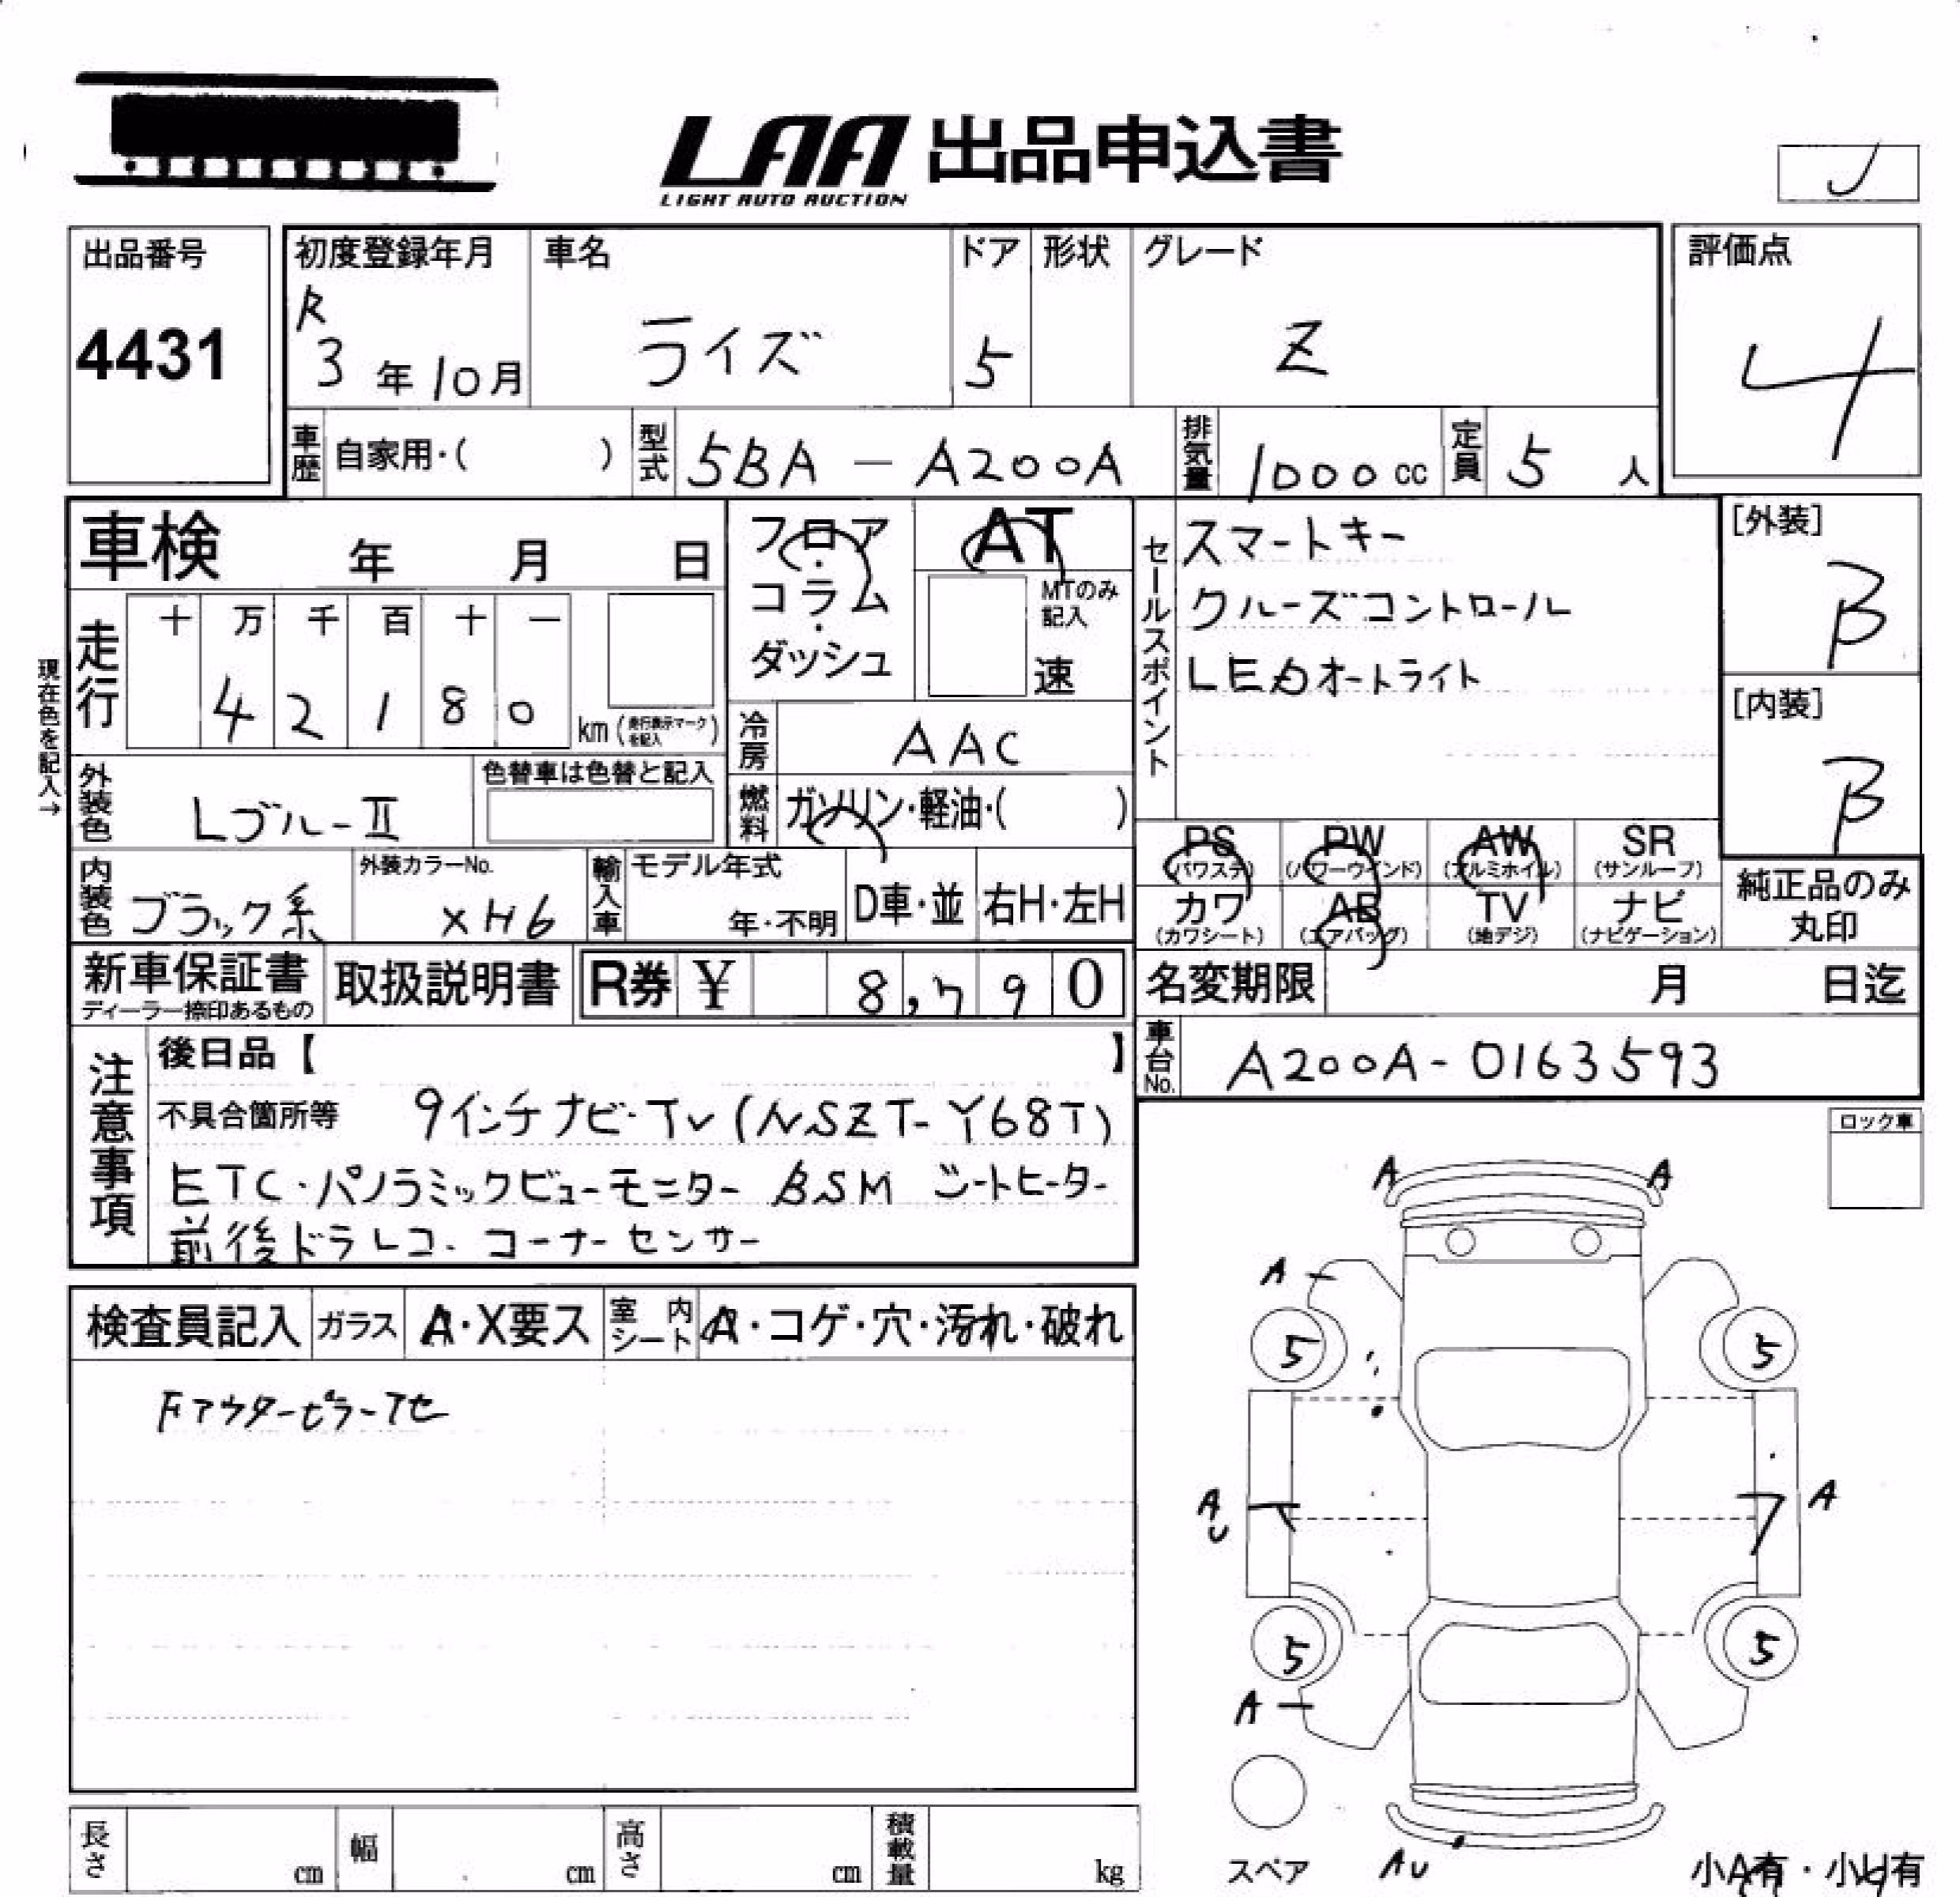 LAA 出品申込書
LIGHT AUTO AUCTION
J
出品番号
4431
初度登録年月
R
3 年 10 月
車名
ライズ
ドア
5
形状
グレード
Z
評価点
4
車歴
自家用・( )
型式
5BA - A200A
排気量
1000 cc
定員
5 人
車検 年 月 日
現在色を記入→
走行
十 万 千 百 十 一
4 2 1 8 0 km
(走行表示マークを記入)
外装色
Lブルーⅱ
色替車は色替と記入
内装色
ブラック系
外装カラーNo.
XH6
フロア・
コラム・
ダッシュ
AT
MTのみ
記入
速
冷房
AAC
燃料
ガソリン・軽油・( )
輸入車
モデル年式
年・不明
D車・並
右H・左H
セールスポイント
スマートキー
クルーズコントロール
LEDオートライト
[外装]
B
[内装]
B
PS
(パワステ)
PW
(パワーウインド)
AW
(アルミホイル)
SR
(サンルーフ)
カワ
(カワシート)
AB
(エアバッグ)
TV
(地デジ)
ナビ
(ナビゲーション)
純正品のみ
丸印
新車保証書
ディーラー捺印あるもの
取扱説明書
R券 ¥ 8,790
名変期限 月 日迄
車台No.
A200A-0163593
注意事項
後日品【 】
不具合箇所等 9インチナビ・TV(NSZT-Y68T)
ETC・パノラミックビューモニター BSM シートヒーター
前後ドラレコ・コーナーセンサー
ロック車
検査員記入
ガラス
A・X要ス
室内
シート
A・コゲ・穴・汚れ・破れ
Fアウターピラーアセ
A A
A
5 5
A
U
A
5 5
A
スペア
AU
小A有・小U有
長さ cm
幅 cm
高さ cm
積載量 kg